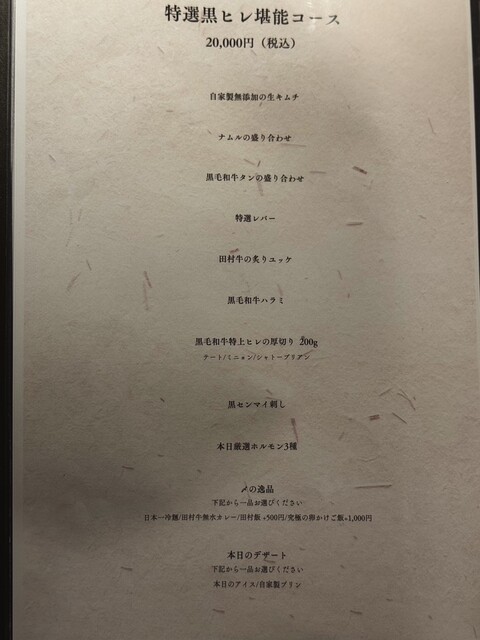 特選黒ヒレ堪能コース
20,000円（税込）
自家製無添加の生キムチ
ナムルの盛り合わせ
黒毛和牛タンの盛り合わせ
特選レバー
田村牛の炙りユッケ
黒毛和牛ハラミ
黒毛和牛特上ヒレの厚切り 200g
テート/ミニョン/シャトーブリアン
黒センマイ刺し
本日厳選ホルモン3種
〆の逸品
下記から一品お選びください
日本一冷麺/田村牛無水カレー/田村飯 +500円/究極の卵かけご飯+1,000円
本日のデザート
下記から一品お選びください
本日のアイス/自家製プリン